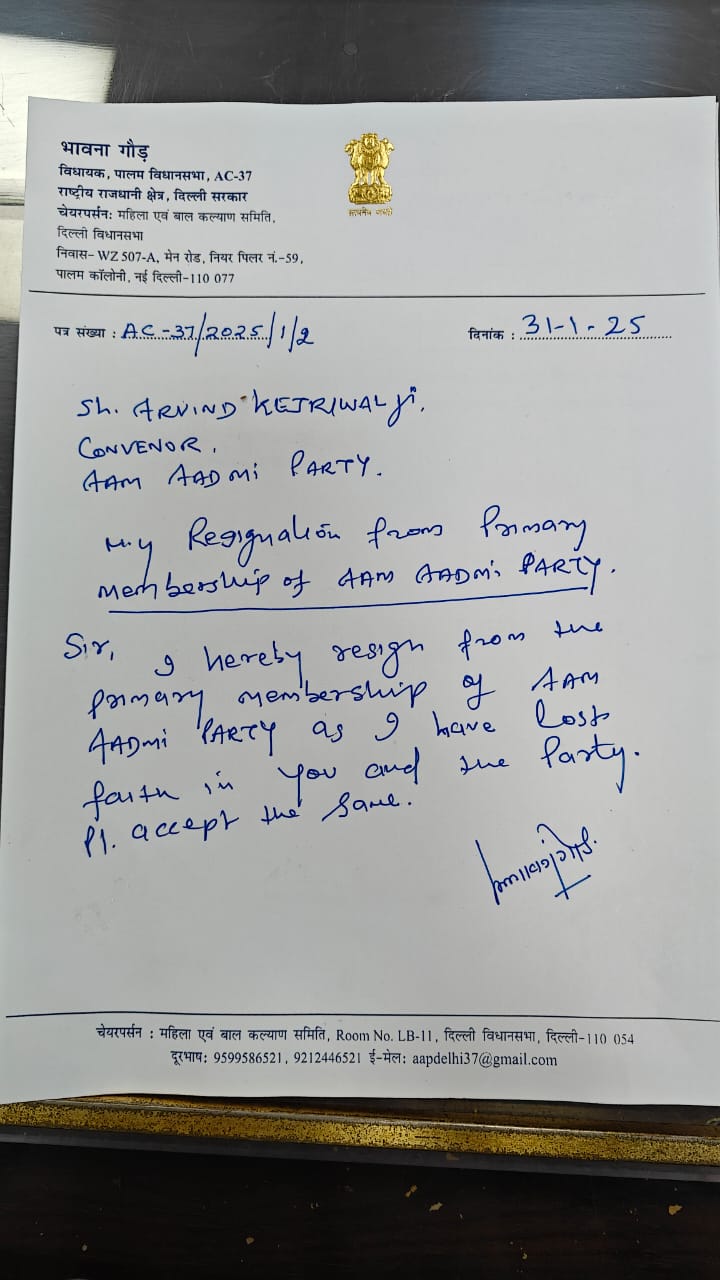 भावना गौड़
विधायक, पालम विधानसभा, AC-37
राष्ट्रीय राजधानी क्षेत्र, दिल्ली सरकार
चेयरपर्सन: महिला एवं बाल कल्याण समिति,
दिल्ली विधानसभा
निवास- WZ 507-A, मेन रोड, नियर पिलर नं.-59,
पालम कॉलोनी, नई दिल्ली-110 077
सत्यमेव जयते
पत्र संख्या : AC-37/2025/1/2
दिनांक : 31-1-25
Sh. ARVIND KEJRIWAL ji,
CONVENOR,
AAM AADMi PARTY.
My Resignation from Primary
Membership of AAM AADMi PARTY.
Sir, I hereby resign from the
Primary membership of AAM
AADMi PARTY as I have lost
faith in you and the Party.
Pl. accept the same.
चेयरपर्सन : महिला एवं बाल कल्याण समिति, Room No. LB-11, दिल्ली विधानसभा, दिल्ली-110 054
दूरभाष: 9599586521, 9212446521 ई-मेल: aapdelhi37@gmail.com